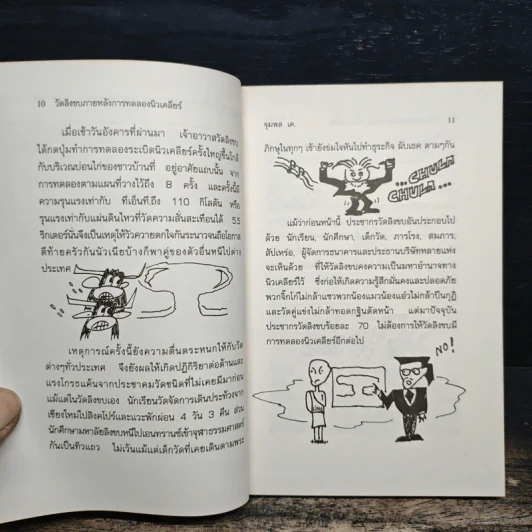 10 วัดลิงขบภายหลังการทดลองนิวเคลียร์
เมื่อเช้าวันอังคารที่ผ่านมา เจ้าอาวาสวัดลิงขบ
ได้กดปุ่มทำการทดลองระเบิดนิวเคลียร์ครั้งใหญ่ขึ้นใกล้
กับบริเวณบ่อนไก่ของชาวบ้านที่ อยู่อาศัยแถบนั้น จาก
การทดลองตามแผนที่วางไว้ถึง 8 ครั้ง และครั้งนี้มี
ความรุนแรงเท่ากับ ทีเอ็นที.ถึง 110 กิโลตัน หรือ
รุนแรงเท่ากับแผ่นดินไหวที่วัดความสั่นสะเทือนได้ 5.5
ริกเตอร์นั่นจึงเป็นเหตุให้วัวควายตกใจกันระนาวจนถือโอกาส
ตีท้ายครัวกันนัวเนียบ้างก็พาคู่ของตัวอื่นหนีไปต่าง
ประเทศ
เหตุการณ์ครั้งนี้ยังความตื่นตระหนกให้กับวัด
ต่างๆทั่วประเทศ จึงยังผลให้เกิดปฏิกิริยาต่อต้านและ
แรงโกรธแค้นจากประชาคมวัดชนิดที่ไม่เคยมีมาก่อน
แม้แต่ในวัดลิงขบเอง นักเรียนวัดจัดการเดินประท้วงจาก
เชียงใหม่ไปสิงคโปร์และแวะพักผ่อน 4 วัน 3 คืน ส่วน
นักศึกษามหาลัยลิงขบหนีไปเอนทรานซ์เข้าจุฬาธรรมศาสตร์
กันเป็นทิวแถว ไม่เว้นแม้แต่เด็กวัดที่เคยเดินตามพระ
จุมพล เค. 11
ภิกษุในทุกๆ เช้ายังข่มใจหันไปทำธุระกิจ ผับเธค ตามๆกัน
...CHULA
CHULA...
แม้ว่าก่อนหน้านี้ ประชากรวัดลิงขบอันประกอบไป
ด้วย นักเรียน, นักศึกษา, เด็กวัด, ภารโรง, สมภาร,
สัปเหร่อ, ผู้จัดการธนาคารและประธานบริษัทหลายแห่ง
จะเห็นด้วย ที่ให้วัดลิงขบคงความเป็นมหาอำนาจทาง
นิวเคลียร์ไว้ ซึ่งก่อให้เกิดความรู้สึกมั่นคงและปลอดภัย
พวกจิ๊กโก๋ไม่กล้าแซวพวกน้องแมวน้องแอ๋วไม่กล้าปืนกุฏิ
และวัดคู่แข่งไม่กล้าทอดกฐินตัดหน้า แต่มาปัจจุบัน
ประชากรวัดลิงขบร้อยละ 70 ไม่ต้องการให้วัดลิงขบมี
การทดลองนิวเคลียร์อีกต่อไป
NO!